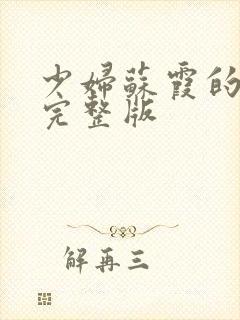 少婦蘇霞的
完整版
解再三